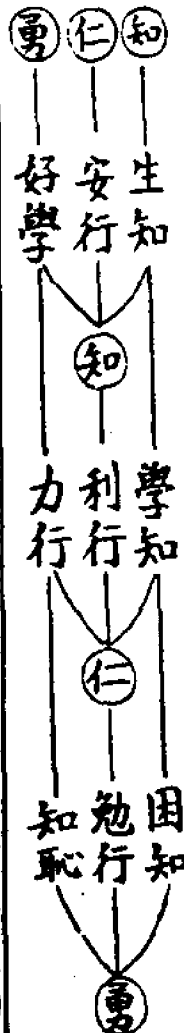 知 仁 勇
生知 安行 好學
知
學知 利行 力行
仁
困知 勉行 知恥
勇